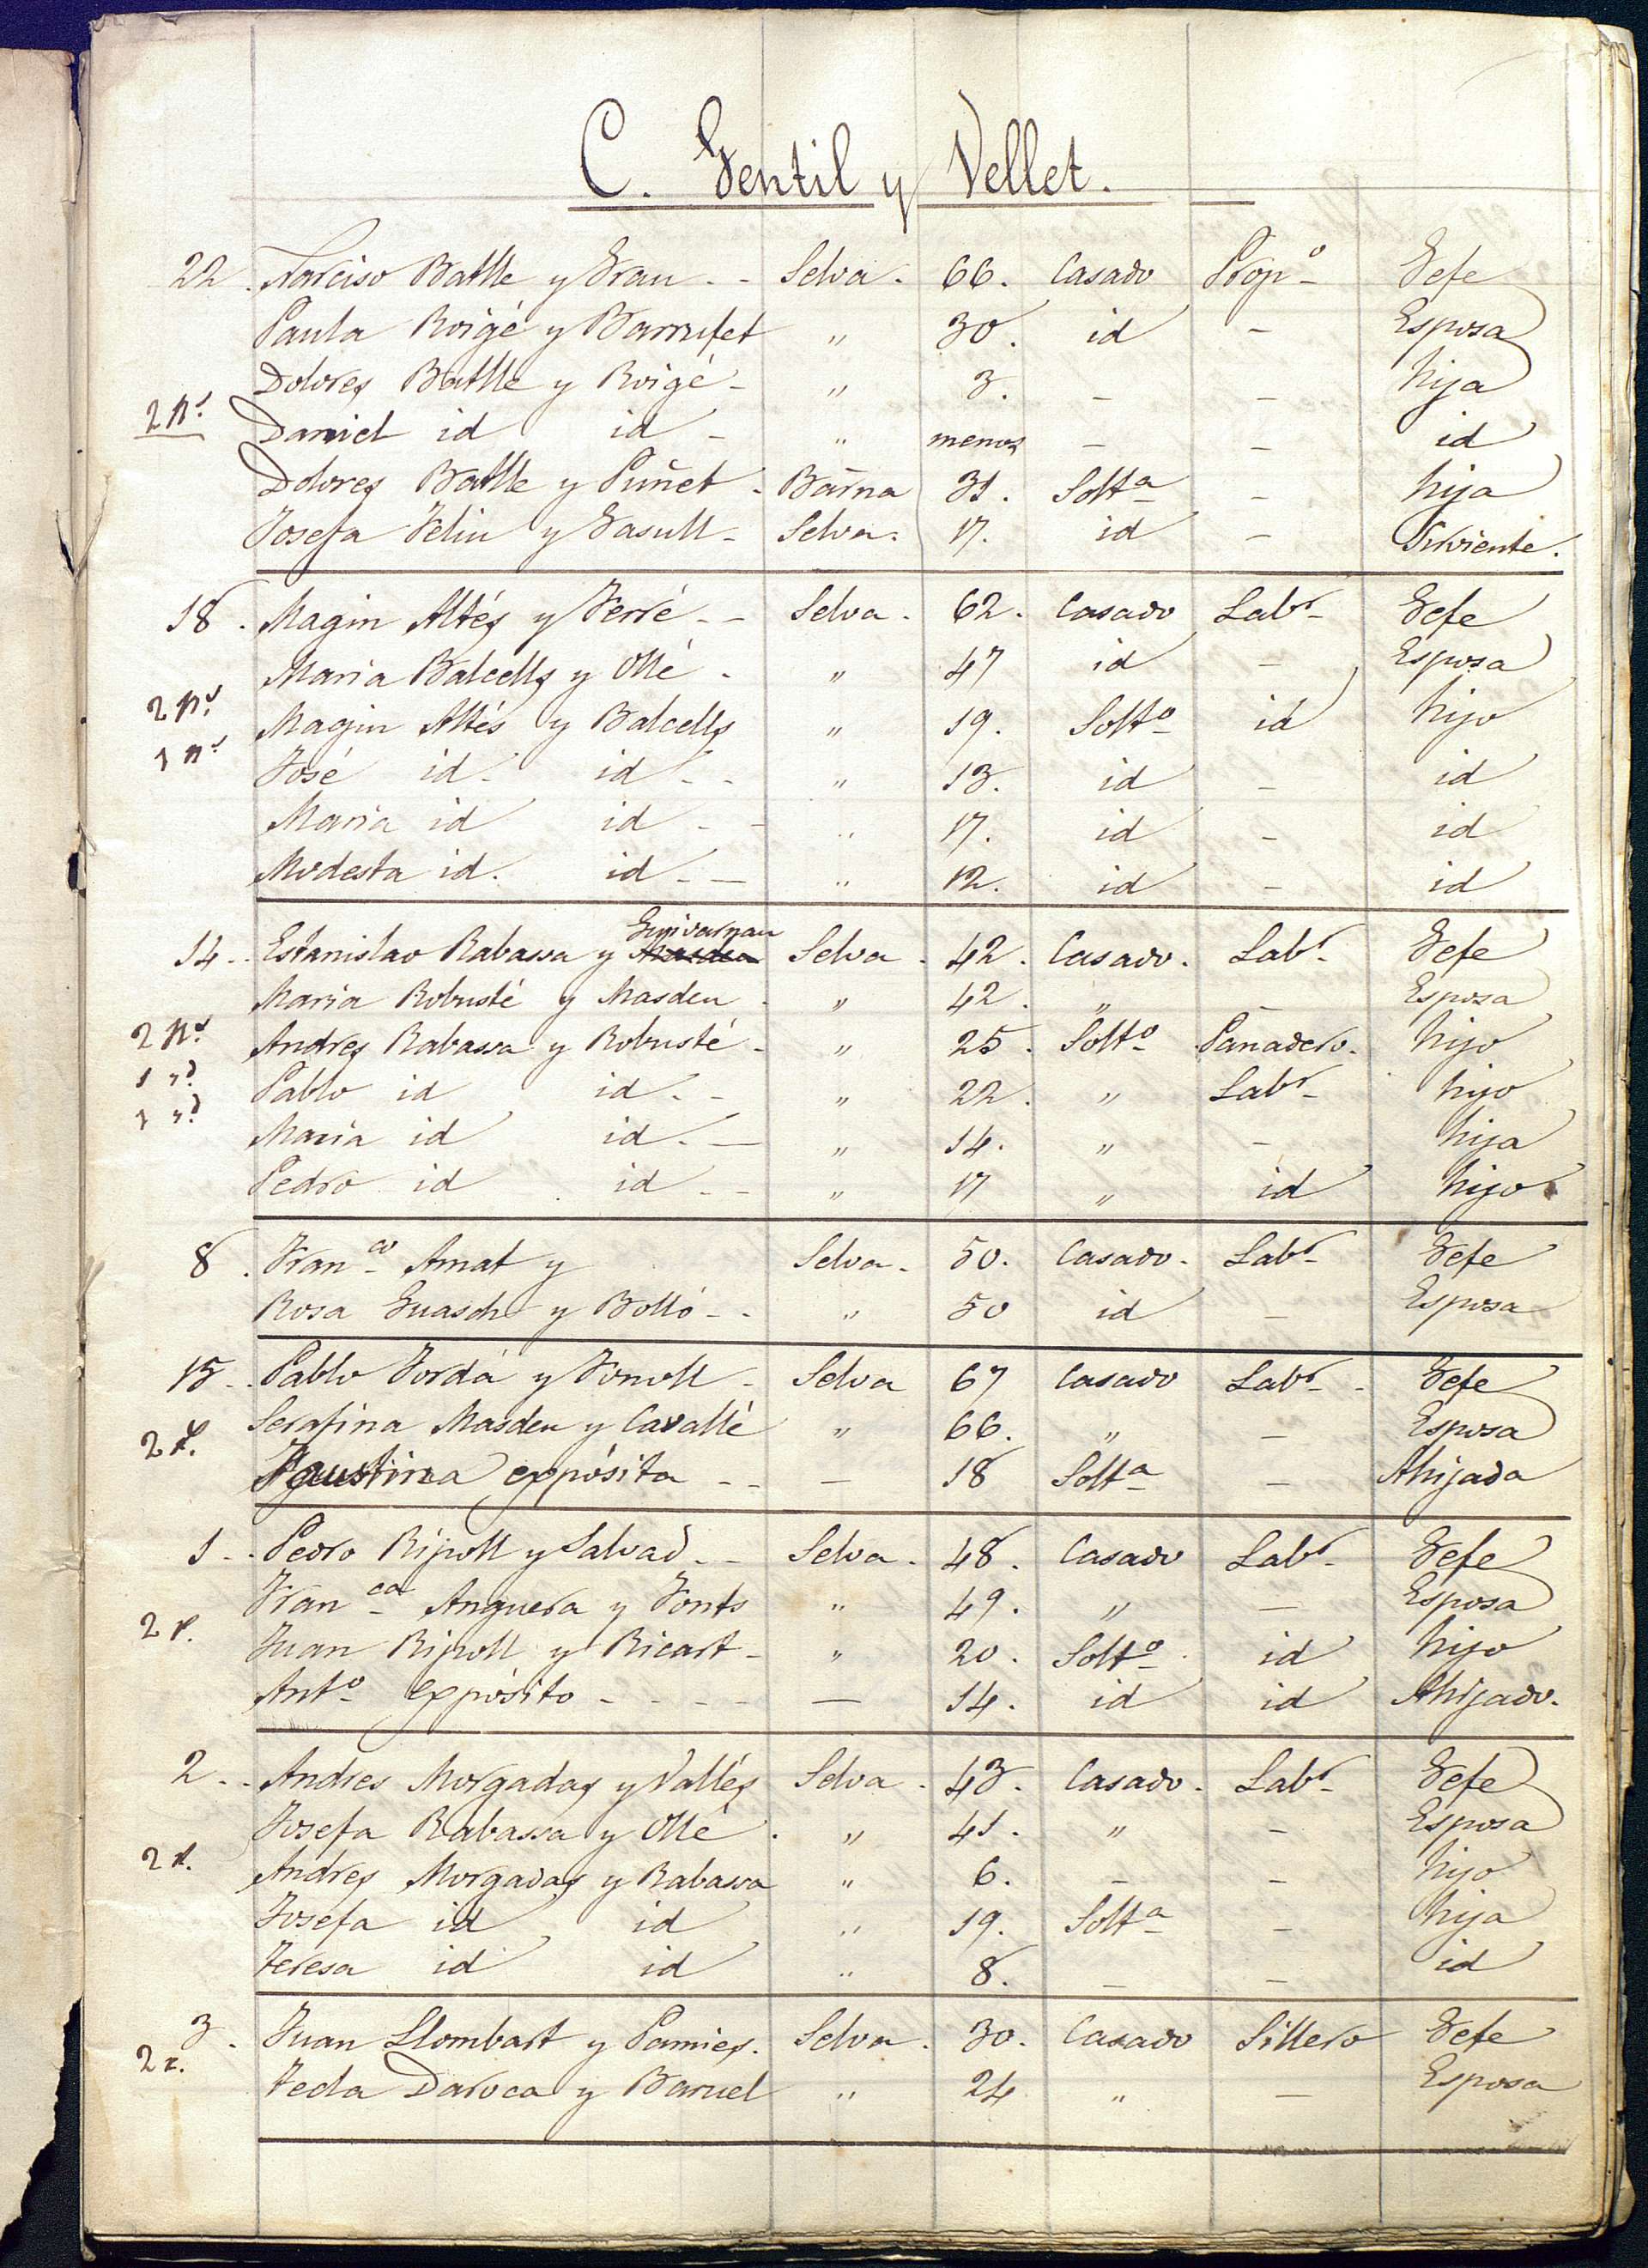 C. Gentil y Vellet.
22. Narciso Batlle y Grau - - Selva. 66. Casado Propº Gefe
Paula Roigé y Barrufet " 30. id - Esposa
Dolores Batlle y Roigé - " 3. - - hija
Daniel id id - " menos - - id
Dolores Batlle y Puñet - Barna 31. Soltª - hija
Josefa Feliu y Gasull - Selva. 17. id - Sirviente.
18. Magin Altés y Ferré - - Selva. 62. Casado Labr Gefe
Maria Balcells y Ollé - " 47 id - Esposa
Magin Altés y Balcells " 19. Soltº id hijo
José id. id - - " 13. id - id
Maria id id - - " 17. id - id
Modesta id. id - - " 12. id - id
Guivernau
14. Estanislao Rabassa y Selva. 42. Casado. Labr Gefe
Maria Robusté y Masdeu. " 42. " - Esposa
Andres Rabassa y Robusté - " 25. Soltº Panadero. hijo
Pablo id id. - " 22. " Labr hijo
Maria id id. - " 14. " - hija
Pedro id id - - " 17 " id hijo
8. Franco Amat y Selva. 50. Casado. Labr Gefe
Rosa Guasch y Bolló - - " 50 id - Esposa
15. Pablo Jordá y Fonoll - Selva 67 Casado Labr - Gefe
Serafina Masdeu y Cavallé " 66. " - Esposa
Agustina expósita - - - 18 Soltª - Ahijada
1. Pedro Ripoll y Salvad - - Selva. 48. Casado Labr Gefe
Franca Anguera y Fonts " 49. " - Esposa
Juan Ripoll y Ricart - " 20. Soltº id hijo
Antº expósito - - - - - 14. id id Ahijado.
2. Andres Morgadas y Vallés Selva. 43. Casado. Labr Gefe
Josefa Rabassa y Ollé. " 41. " - Esposa
Andres Morgadas y Rabassa " 6. - - hijo
Josefa id id " 19. Soltª - hija
Teresa id id " 8. - - id
3. Juan Llombart y Pamies. Selva. 30. Casado Sillero Gefe
Tecla Daroca y Baruel " 24 " - Esposa